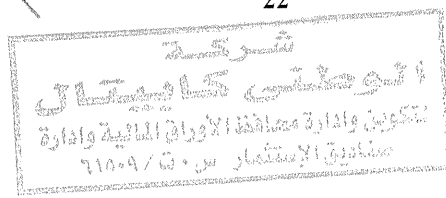 22
شركة
الوطنى كابيتال
لتكوين وادارة محافظ الأوراق المالية وادارة
صناديق الإستثمار س.ت/٦١٥٠٩